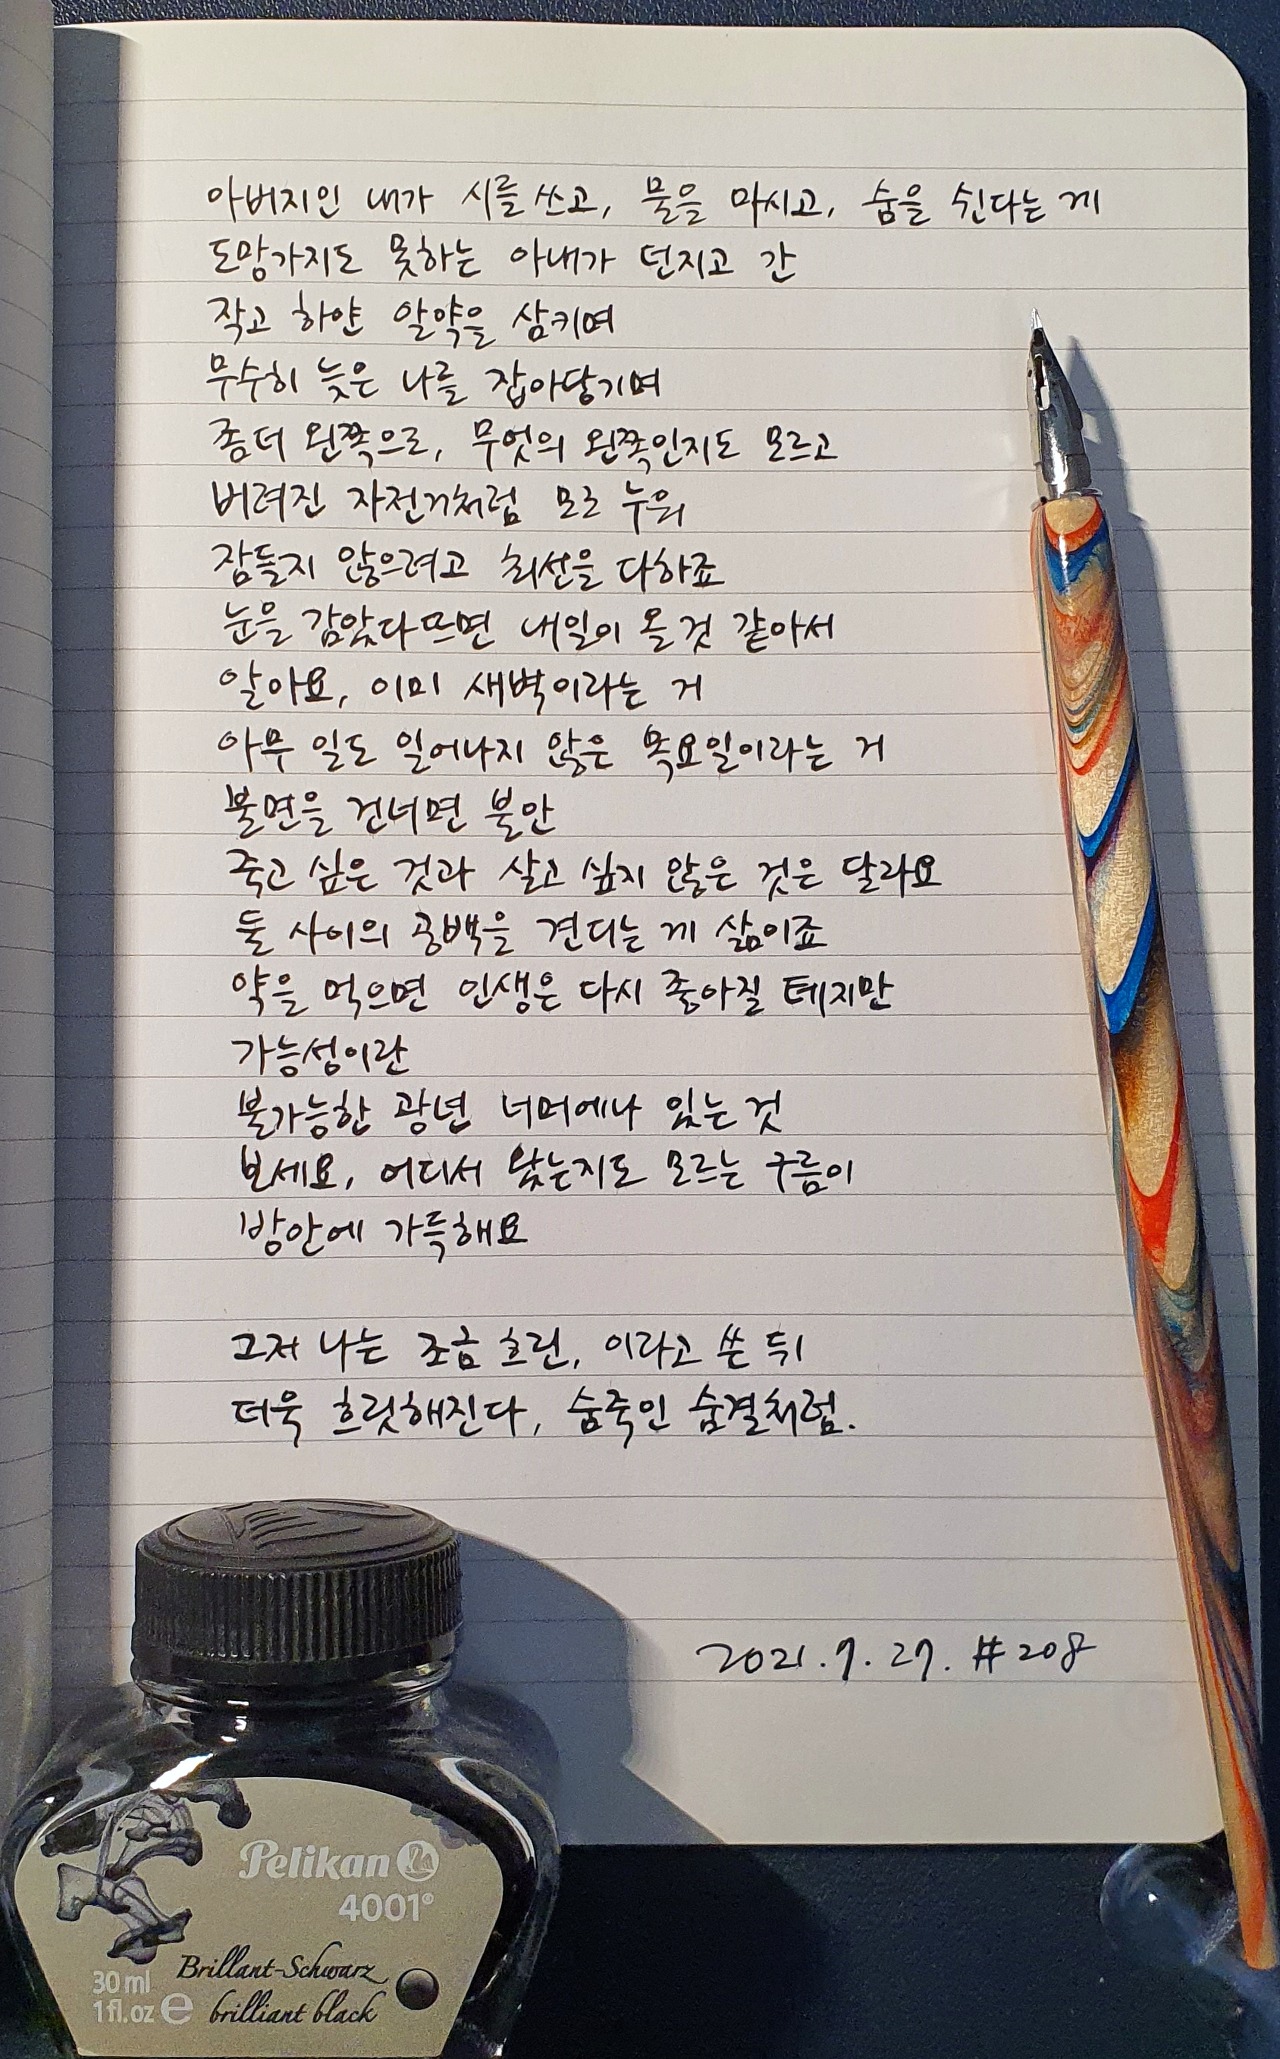 아버지인 내가 시를 쓰고, 물을 마시고, 숨을 쉰다는 게
도망가지도 못하는 아내가 던지고 간
작고 하얀 알약을 삼키며
무수히 늦은 나를 잡아당기며
좀더 왼쪽으로, 무엇의 왼쪽인지도 모르고
버려진 자전거처럼 모로 누워
잠들지 않으려고 최선을 다하죠
눈을 감았다 뜨면 내일이 올것 같아서
알아요, 이미 새벽이라는 거
아무 일도 일어나지 않은 목요일이라는 거
불면을 건너면 불안
죽고 싶은 것과 살고 싶지 않은 것은 달라요
둘 사이의 공백을 견디는 게 삶이죠
약을 먹으면 인생은 다시 좋아질 테지만
가능성이란
불가능한 광년 너머에나 있는 것
보세요, 어디서 왔는지도 모르는 구름이
방안에 가득해요
그저 나는 조금 흐린, 이라고 쓴 뒤
더욱 흐릿해진다, 숨죽인 숨결처럼.
2021.9.27. #208
Pelikan
4001®
Brillant-Schwarz
30 ml
1fl.oz e brilliant black